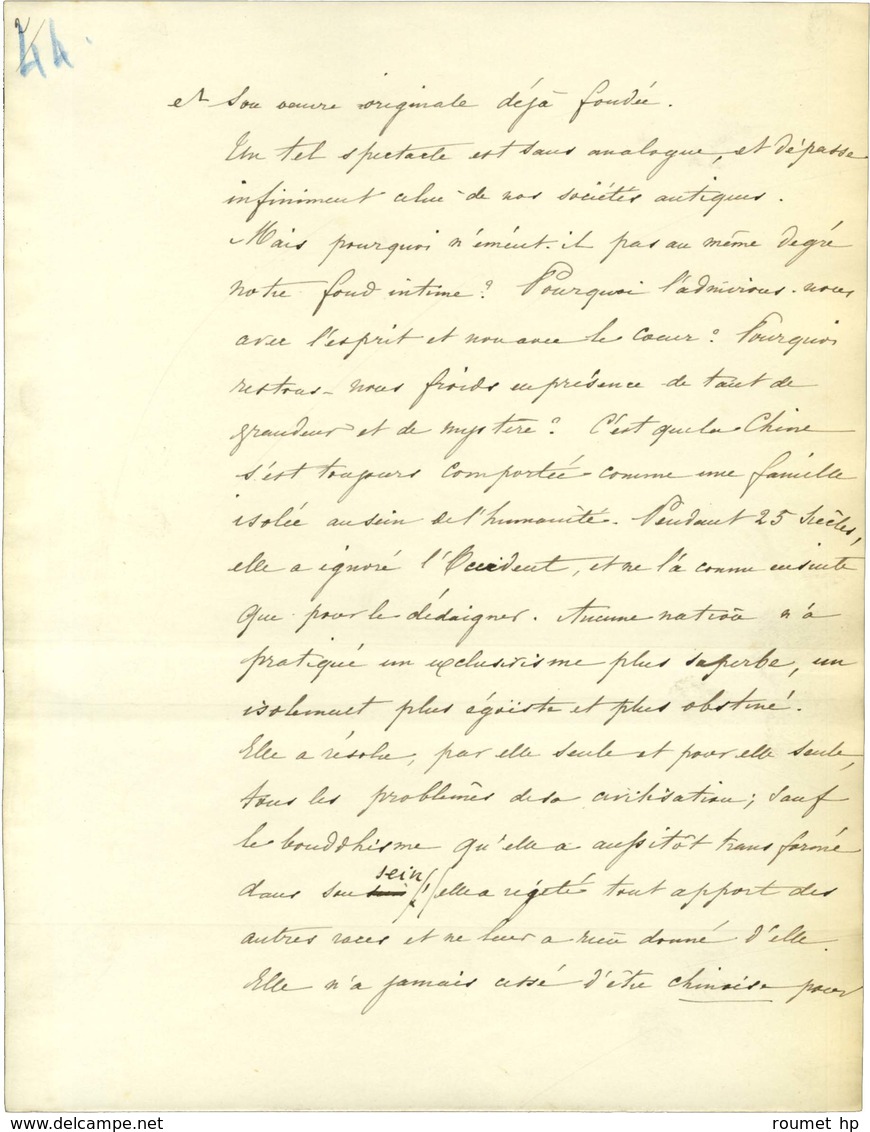 44.
et son œuvre originale déjà fondée.
Un tel spectacle est sans analogue, et dépasse
infiniment celui de nos sociétés antiques.
Mais pourquoi n'émeut-il pas au même degré
notre fond intime? Pourquoi l'admirons-nous
avec l'esprit et non avec le cœur? Pourquoi
restons-nous froids en présence de tant de
grandeur et de mystère? C'est que la Chine
s'est toujours comportée comme une famille
isolée au sein de l'humanité. Pendant 25 siècles,
elle a ignoré l'Occident, et ne l'a connu ensuite
que pour le dédaigner. Aucune nation n'a
pratiqué un exclusivisme plus superbe, un
isolement plus égoïste et plus obstiné.
Elle a résolu, par elle seule et pour elle seule,
tous les problèmes de sa civilisation; sauf
le bouddhisme qu'elle a aussitôt transformé
sein
dans son elle a rejeté tout apport des
autres races et ne leur a rien donné d'elle.
Elle n'a jamais cessé d'être chinoise pour
roumet hp